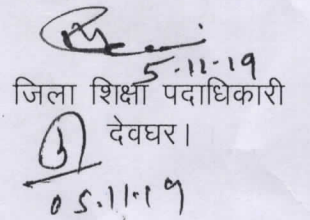 5-11-19
जिला शिक्षा पदाधिकारी
देवघर।
05.11.19